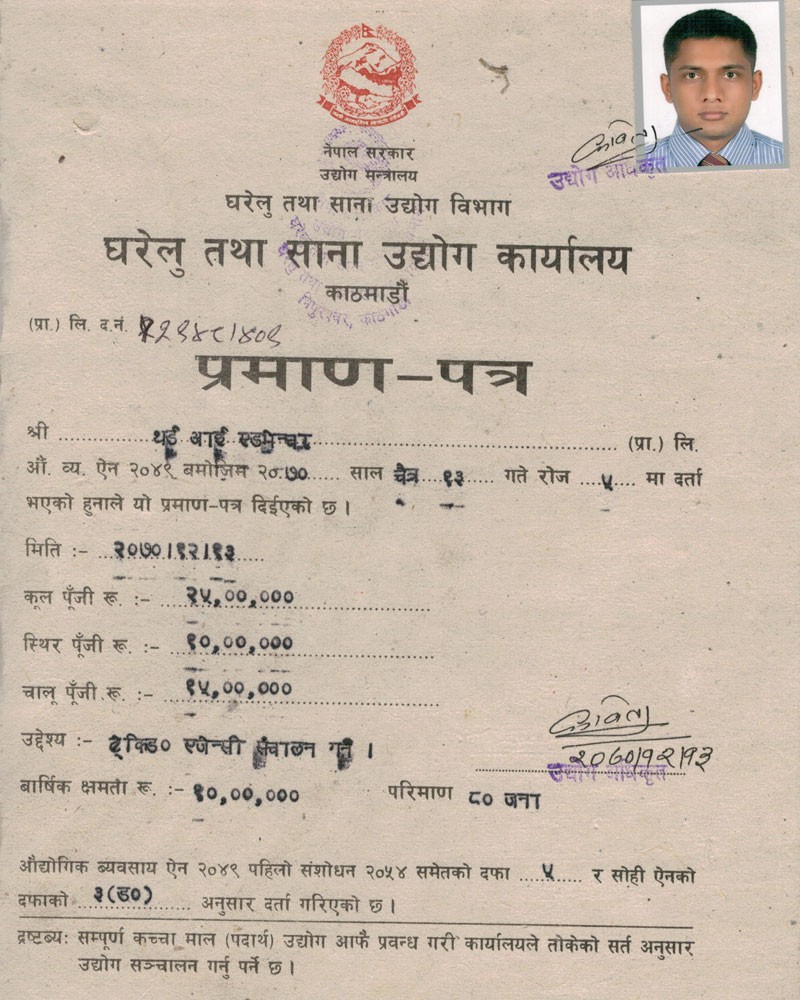 नेपाल सरकार
उद्योग मन्त्रालय
घरेलु तथा साना उद्योग विभाग
घरेलु तथा साना उद्योग कार्यालय
काठमाडौं
कविता
उद्योग अधिकृत
(प्रा.) लि. द.नं.
प्रमाण-पत्र
श्री थर्ड आई एडभेन्चर (प्रा.) लि.
औ. व्य. ऐन २०४९ बमोजिम २०७० साल चैत्र १३ गते रोज ५ मा दर्ता
भएको हुनाले यो प्रमाण-पत्र दिईएको छ ।
मिति :- २०७०।१२।१३
कूल पूँजी रू. :- २५,००,०००
स्थिर पूँजी रू. :- १०,००,०००
चालू पूँजी रू. :- १५,००,०००
कविता
२०७०।१२।१३
उद्योग अधिकृत
उद्देश्य :- ट्रेकिङ० एजेन्सी संचालन गर्ने ।
बार्षिक क्षमता रू. :- १०,००,००० परिमाण ८० जना
औद्योगिक ब्यवसाय ऐन २०४९ पहिलो संशोधन २०५४ समेतको दफा ५ र सोही ऐनको
दफाको ३(ड०) अनुसार दर्ता गरिएको छ ।
द्रष्टब्य: सम्पूर्ण कच्चा माल (पदार्थ) उद्योग आफै प्रवन्ध गरी कार्यालयले तोकेको सर्त अनुसार
उद्योग सञ्चालन गर्नु पर्ने छ ।